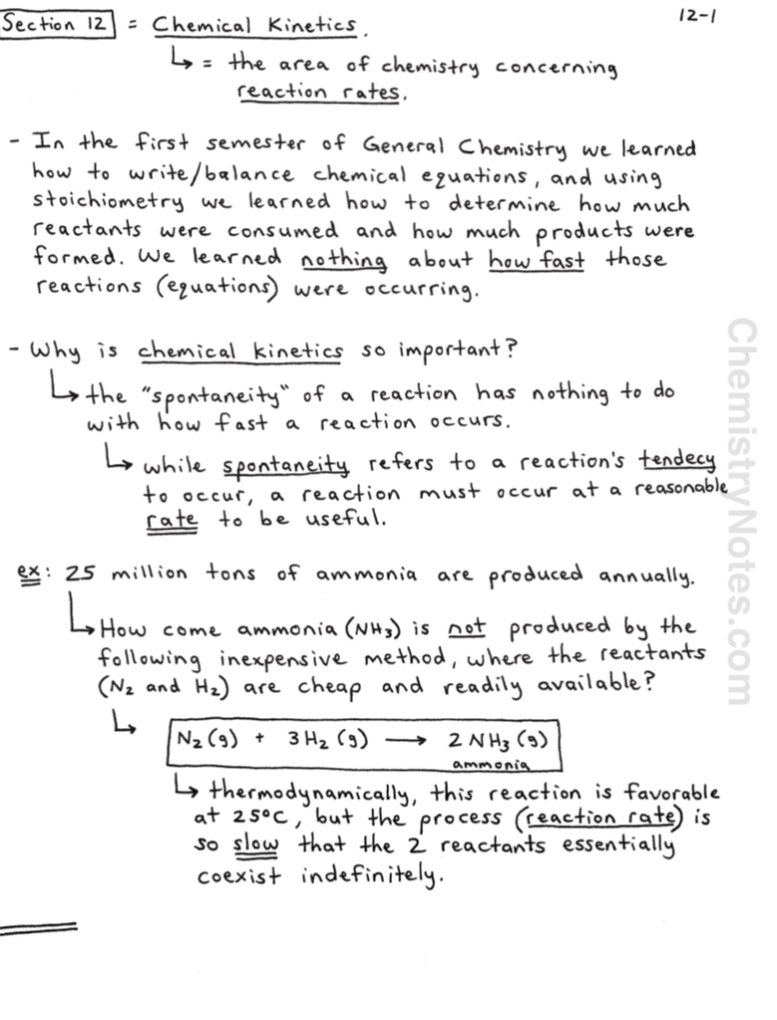 Section 12 = Chemical Kinetics. 12-1
↳ = the area of chemistry concerning
reaction rates.
- In the first semester of General Chemistry we learned
how to write/balance chemical equations, and using
stoichiometry we learned how to determine how much
reactants were consumed and how much products were
formed. We learned nothing about how fast those
reactions (equations) were occurring.
- Why is chemical kinetics so important?
↳ the "spontaneity" of a reaction has nothing to do
with how fast a reaction occurs.
↳ while spontaneity refers to a reaction's tendecy
to occur, a reaction must occur at a reasonable
rate to be useful.
ex: 25 million tons of ammonia are produced annually.
↳ How come ammonia (NH₃) is not produced by the
following inexpensive method, where the reactants
(N₂ and H₂) are cheap and readily available?
↳ N₂(g) + 3H₂(g) → 2NH₃(g)
ammonia
↳ thermodynamically, this reaction is favorable
at 25°C, but the process (reaction rate) is
so slow that the 2 reactants essentially
coexist indefinitely.
ChemistryNotes.com